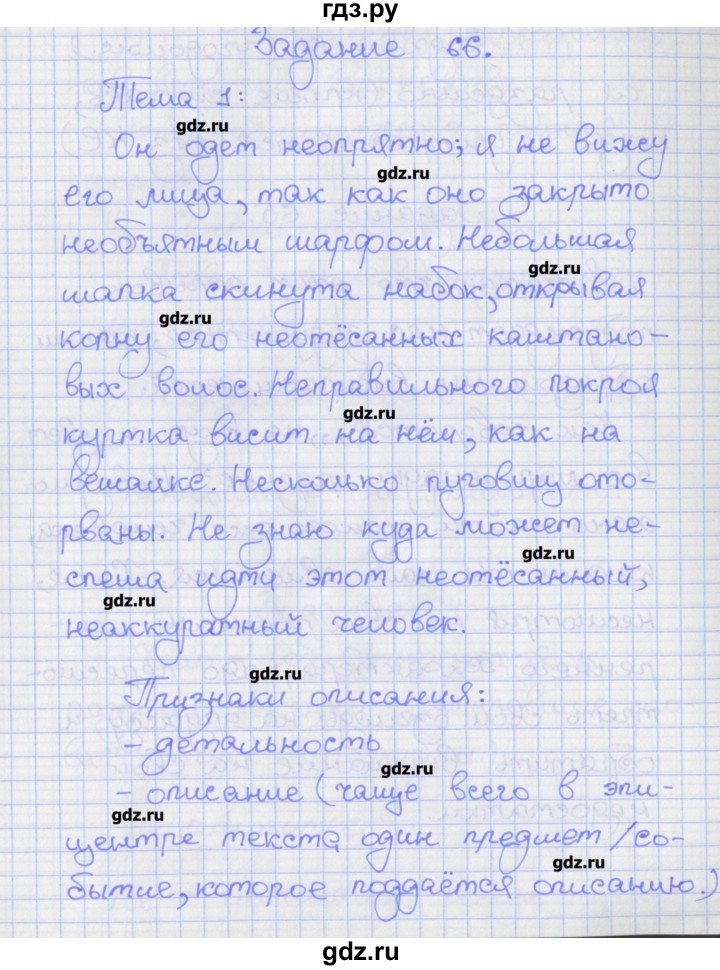 гдз.ру
Задание 66.
Тема 1:
gdz.ru
Он одет неопрятно; я не вижу
gdz.ru
его лица, так как оно закрыто
необъятным шарфом. Небольшая
gdz.ru
шапка скинута набок, открывая
gdz.ru
копну его неотёсанных каштано-
вых волос. Неправильного покроя
gdz.ru
куртка висит на нём, как на
вешалке. Несколько пуговиц ото-
рваны. Не знаю куда может не-
gdz.ru
спеша идти этот неотёсанный,
gdz.ru
неаккуратный человек.
gdz.ru
Признаки описания:
- детальность
gdz.ru
- описание (чаще всего в эпи-
gdz.ru
центре текста один предмет/со-
gdz.ru
бытие, которое поддаётся описанию.)
gdz.ru